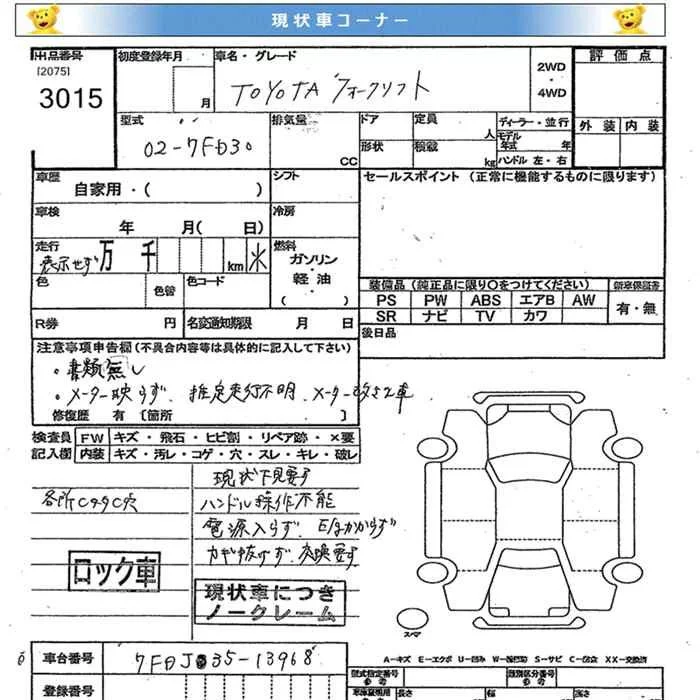 現状車コーナー
出品番号
[2075]
3015
初度登録年月
月
車名・グレード
TOYOTA フォークリフト
2WD
・
4WD
評価点
外装 内装
型式
02-7FD30
排気量
CC
ドア
形状
定員
人
積載
kg
ディーラー・並行
モデル
年式 年
ハンドル 左・右
車歴
自家用・( )
シフト
セールスポイント (正常に機能するものに限ります)
車検
年 月( 日)
冷房
走行
表示せず 万 千 km
燃料
ガソリン
・
軽油
( )
色
色替
色コード
装備品 (純正品に限り○をつけてください)
新車保証書
PS PW ABS エアB AW
SR ナビ TV カワ
有・無
R券 円
名変通知期限 月 日
後日品
注意事項申告欄 (不具合内容等は具体的に記入して下さい)
・書類無し
・メーター映らず. 推定走行不明. メーター改ざん車
修復歴 有 〔箇所 〕
検査員 FW キズ・飛石・ヒビ割・リペア跡・×要
記入欄 内装 キズ・汚レ・コゲ・穴・スレ・キレ・破レ
現状下見要す
各所CサC穴
ハンドル操作不能
電源入らず. E/gかからず
カギ抜けず. 交換要す
ロック車
現状車につき
ノークレーム
スペア
A-キズ E-エクボ U-凹み W-補修跡 S-サビ C-腐食 XX-交換済
車台番号
登録番号
型式指定番号
類別区分番号
参考
長さ
幅
高さ